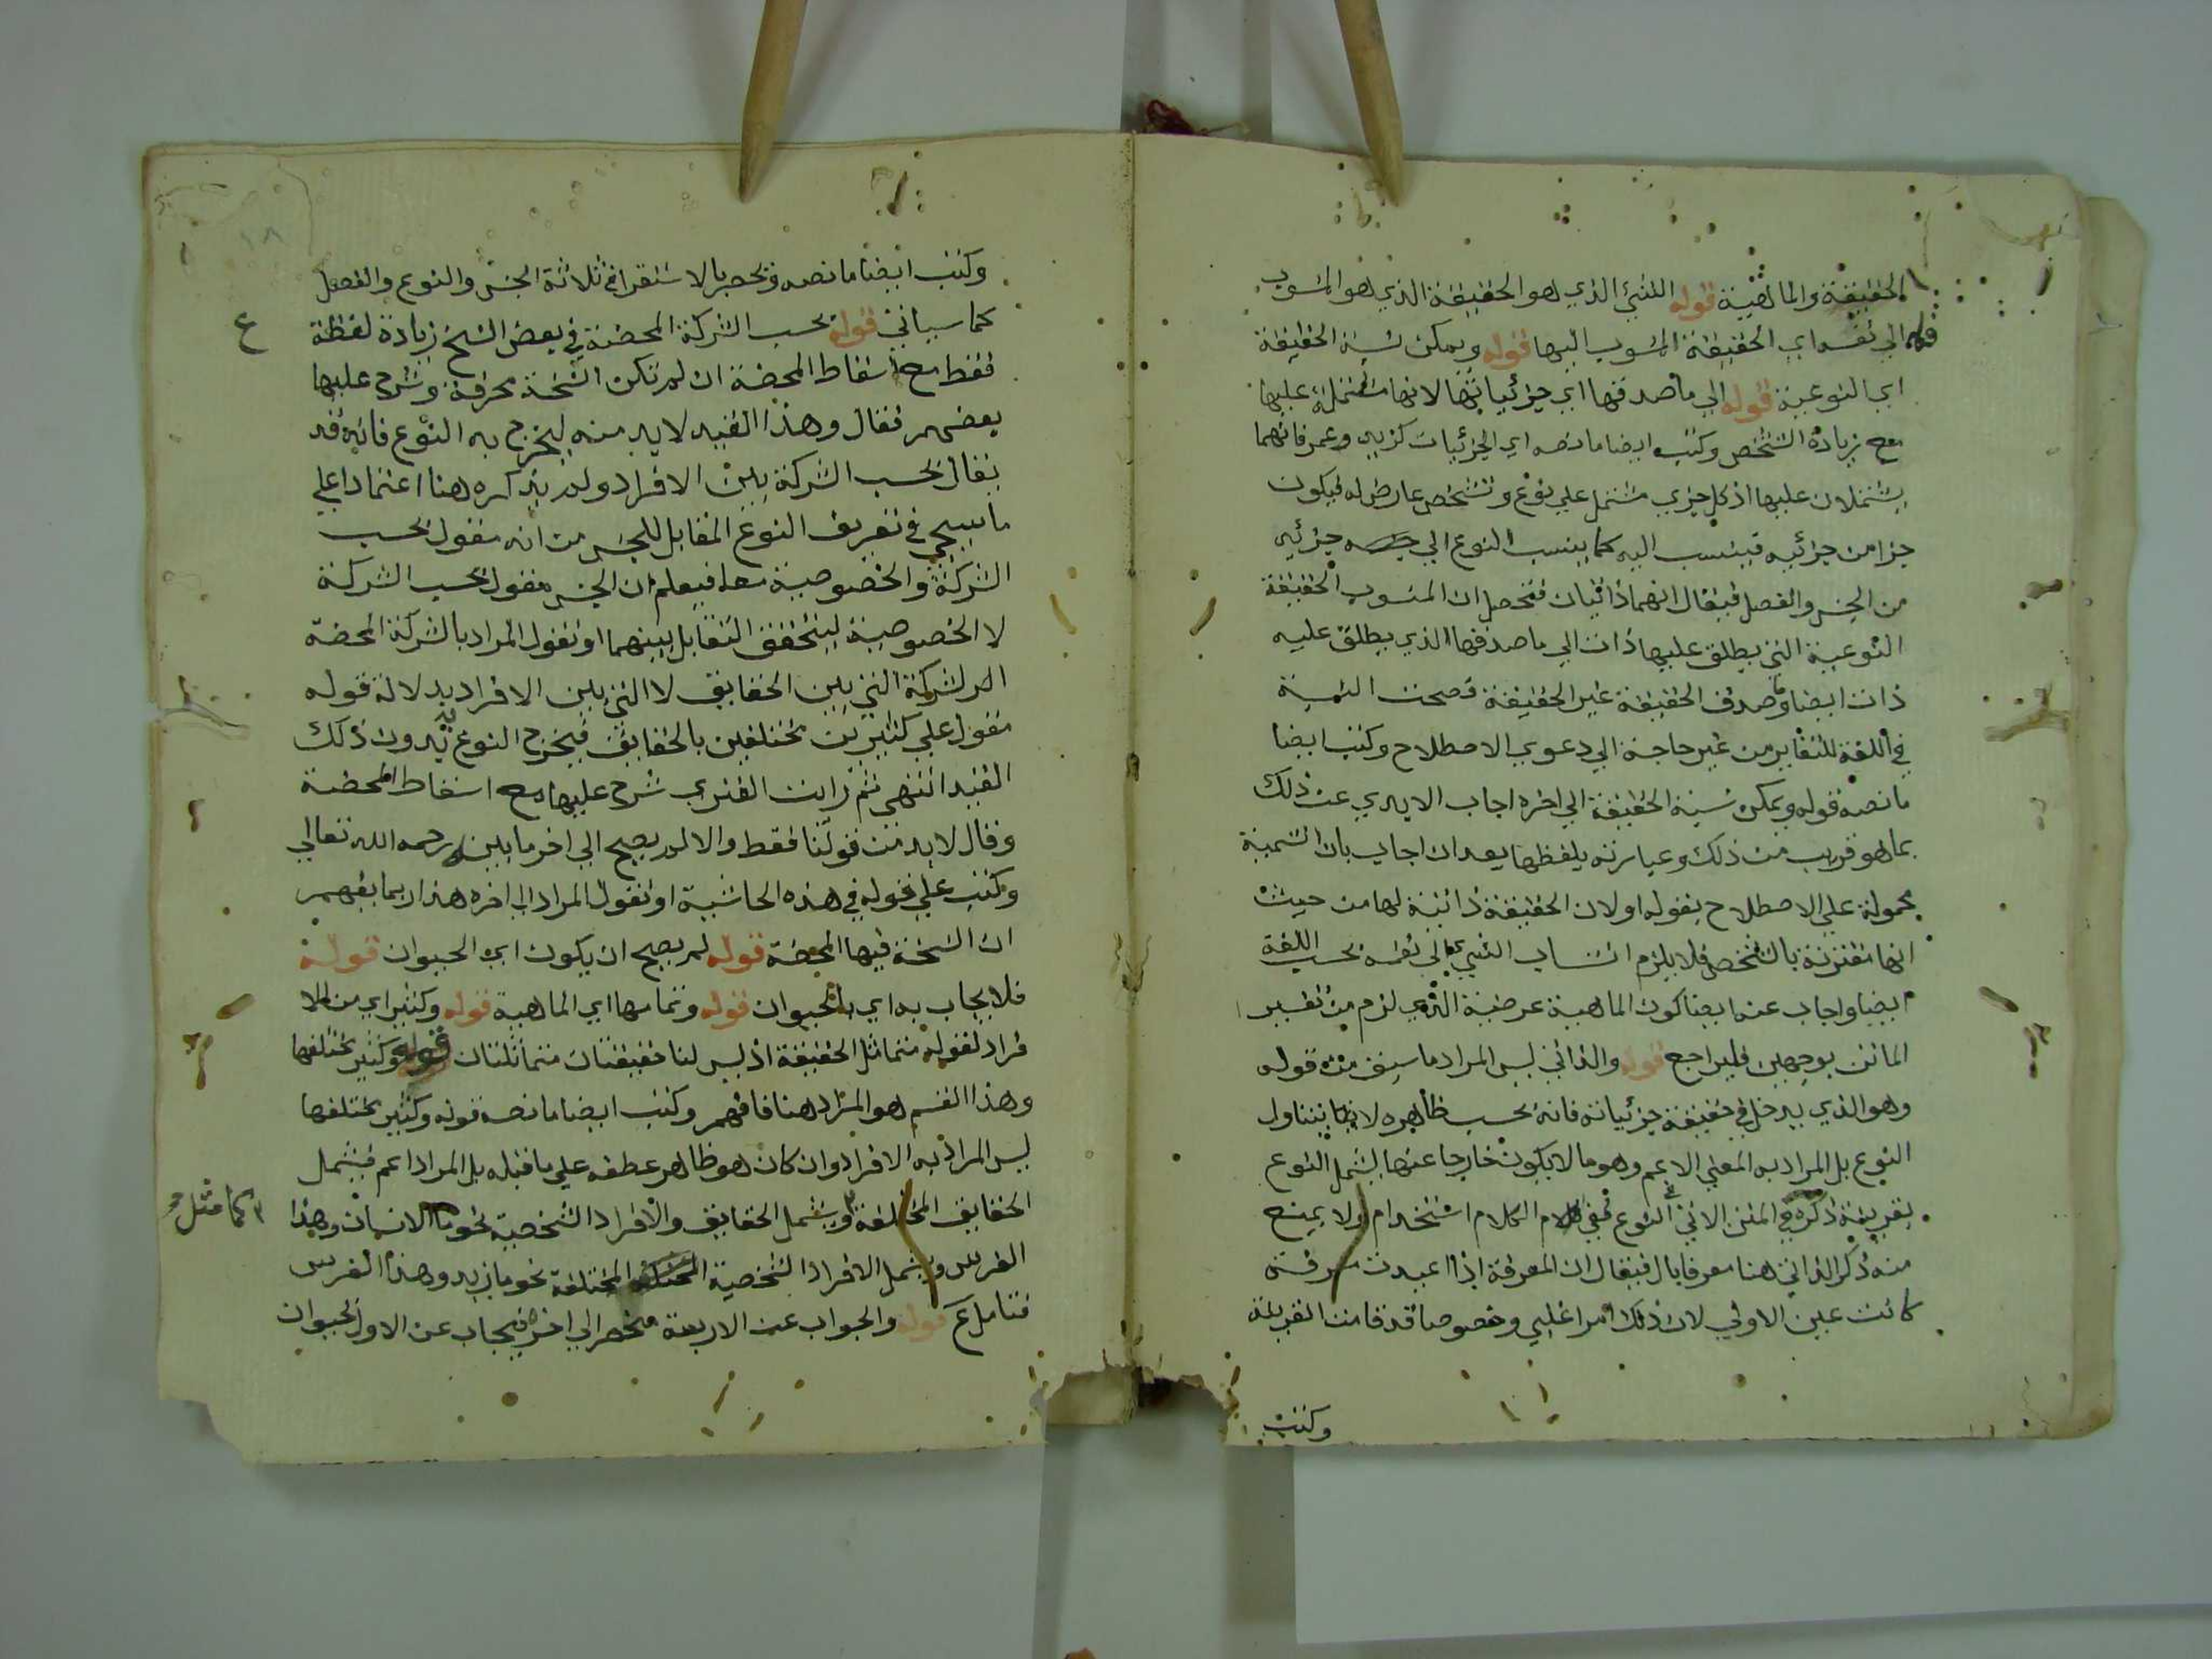 الحقيقة والماهية قوله الشئ الذي هو الحقيقة الذي هو المنسوب
قوله الي نفسه اي الحقيقة المنسوب اليها قوله ويمكن نسبة الحقيقة
اي النوعية قوله الي ما صدقها اي جزئياتها لانها مشتملة عليها
مع زيادة التشخص وكتب ايضا ما نصه اي الجزئيات كزيد وعمر فانهما
يشتملان عليها اذ كل جزي مشتمل علي نوع وتشخص عارض له فيكون
جزا من جزئيه فينسب اليه كما ينسب النوع الي جزئيه
من الجنس والفصل فيقال انهما ذاتيان فتحصل ان المنسوب الحقيقة
النوعية التي يطلق عليها ذات الي ما صدقها الذي يطلق عليه
ذات ايضا وما صدق الحقيقة غير الحقيقة فصحت النسبة
في اللغة للتغاير من غير حاجة الي دعوي الاصطلاح وكتب ايضا
ما نصه قوله ويمكن نسبة الحقيقة الي اخره اجاب الايدي عن ذلك
بما هو قريب من ذلك وعبارته بلفظها بعد ان اجاب بان التسمية
محمولة علي الاصطلاح بقوله او لان الحقيقة ذاتية لها من حيث
انها مقترنة بالتشخص فلا يلزم انتساب الشي الي نفسه بحسب اللغة
ايضا واجاب عنه ايضا كون الماهية عرضية الذي لزم من تفسير
الماتن بوجهين فليراجع قوله والذاتي ليس المراد ما سبق من قوله
وهو الذي يدخل في حقيقة جزئياته فانه بحسب ظاهره لا يتناول
النوع بل المراد به المعني الاعم وهو ما لا يكون خارجا عنها ليشمل النوع
بقرينة ذكره في المتن الاتي النوع ففي الكلام استخدام ولا يمنع
منه ذكر الذاتي هنا معرفا بال فيقال ان المعرفة اذا اعيدت معرفة
كانت عين الاولي لان ذلك امرا غلبي وخصوصا قد قامت القرينة
وكتب
وكتب ايضا ما نصه وتحصر بالاستقرا في ثلاثة الجنس والنوع والفصل
كما سياتي قوله بحسب الشركة المحضة في بعض النسخ زيادة لفظة
ع
فقط مع اسقاط المحضة ان لم تكن النسخة محرفة وشرح عليها
بعضهم فقال وهذا القيد لا بد منه ليخرج به النوع فانه قد
يقال بحسب الشركة بين الافراد ولم يذكره هنا اعتمادا علي
ما سيجي في تعريف النوع المقابل للجنس من انه مقول بحسب
الشركة والخصوصية معا فيعلم ان الجنس مقول بحسب الشركة
لا الخصوصية ليتحقق التقابل بينهما او نقول المراد بالشركة المحضة
الشركة التي بين الحقايق لا التي بين الافراد بدلالة قوله
مقول علي كثيرين مختلفين بالحقايق فيخرج النوع به بدون ذلك
القيد انتهي ثم رايت الفنري شرح عليها مع اسقاط المحضة
وقال لا بد من قولنا فقط والا لم يصح الي اخر ما بينه رحمه الله تعالي
وكتب علي قوله في هذه الحاشية او نقول المراد الي اخره هذا ربما يفهم
ان النسخة فيها المحضة قوله لم يصح ان يكون اي الحيوان قوله
فلا يجاب به اي بالحيوان قوله وتمامها اي الماهية قوله وكثير اي من الا
فراد لقوله متماثل الحقيقة اذ ليس لنا حقيقتان متماثلتان قوله وكثير مختلفها
وهذا القسم هو المراد هنا فافهم وكتب ايضا ما نصه قوله وكثير مختلفها
ليس المراد به الافراد وان كان هو ظاهر عطفه علي ما قبله بل المراد اعم فيشمل
الحقايق المختلفة ويشمل الحقايق والافراد الشخصية نحو ما الانسان وهذا
كما مثل
الفرس ويشمل الافراد الشخصية المختلفة نحو ما زيد وهذا الفرس
فتامل ع قوله والجواب عن الاربعة منحصر الي اخره فيجاب عن الاول الحيوان